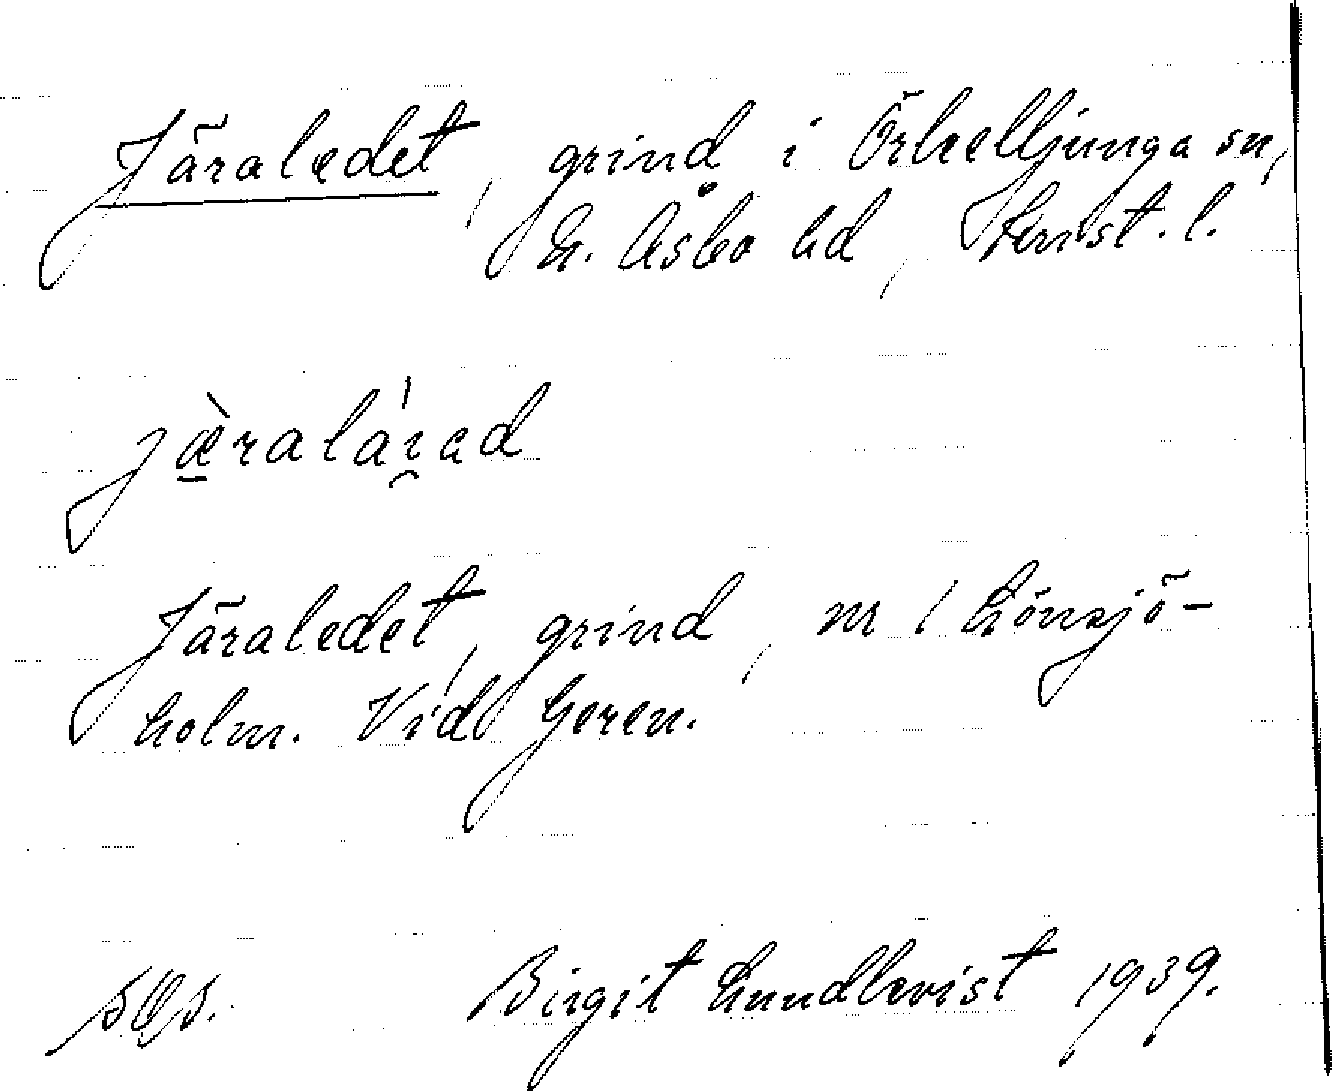 Järaledet, grind i Örkelljunga sn,
N. Åsbo hd, Krist. l.
jæ̱̀ralái̯ad
Järaledet, grind, nr 1 Lönsjö-
holm. Vid Geren.
Birgit Lundkvist 1939.